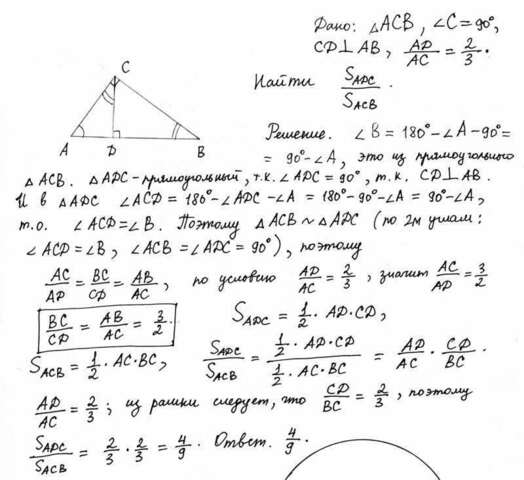 Дано: △ACB, ∠C=90°,
CD⊥AB, AD/AC = 2/3.
Найти S_ADC/S_ACB.
C
A D B
Решение. ∠B = 180°-∠A-90°=
= 90°-∠A, это из прямоугольного
△ACB. △ADC-прямоугольный, т.к. ∠ADC = 90°, т.к. CD⊥AB.
И в △ADC ∠ACD = 180°-∠ADC -∠A = 180°-90°-∠A = 90°-∠A,
т.о. ∠ACD=∠B. Поэтому △ACB ~ △ADC (по 2м углам:
∠ACD=∠B, ∠ACB = ∠ADC = 90°), поэтому
AC/AD = BC/CD = AB/AC, по условию AD/AC = 2/3, значит AC/AD = 3/2
BC/CD = AB/AC = 3/2. S_ADC = 1/2 · AD·CD,
S_ACB = 1/2 · AC·BC, S_ADC/S_ACB = (1/2 · AD·CD)/(1/2 · AC·BC) = AD/AC · CD/BC.
AD/AC = 2/3; из рамки следует, что CD/BC = 2/3, поэтому
S_ADC/S_ACB = 2/3 · 2/3 = 4/9. Ответ. 4/9.